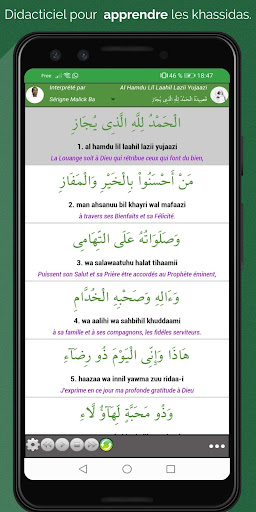 Didacticiel pour apprendre les khassidas.
Free 46 % 18:47
Interprété par Al Hamdu Lil Laahil Lazii Yujaazi
Sérigne Malick Ba
الْحَمْدُ لِلَّهِ الَّذِى يُجَازِ
1. al hamdu lil laahil lazii yujaazi
La Louange soit à Dieu qui rétribue ceux qui font du bien,
مَنْ أَحْسَنُواْ بِالْخَيْرِ وَالْمَفَازِ
2. man ahsanuu bil khayri wal mafaazi
à travers ses Bienfaits et sa Félicité.
وَصَلَوَاتُهُ عَلَى التِّهَامِى
3. wa salawaatuhu halat tihaamii
Puissent son Salut et sa Prière être accordés au Prophète éminent,
وَءَالِهِ وَصَحْبِهِ الْخُدَّامِ
4. wa aalihi wa sahbihil khuddaami
à sa famille et à ses compagnons, les fidèles serviteurs.
هَاذَا وَإِنِّى الْيَوْمَ ذُو رِضَاءِ
5. haazaa wa innil yawma zuu ridaa-i
J'exprime en ce jour ma profonde gratitude à Dieu
وَذُو مَحَبَّةٍ لِهَاؤُ لَاءِ